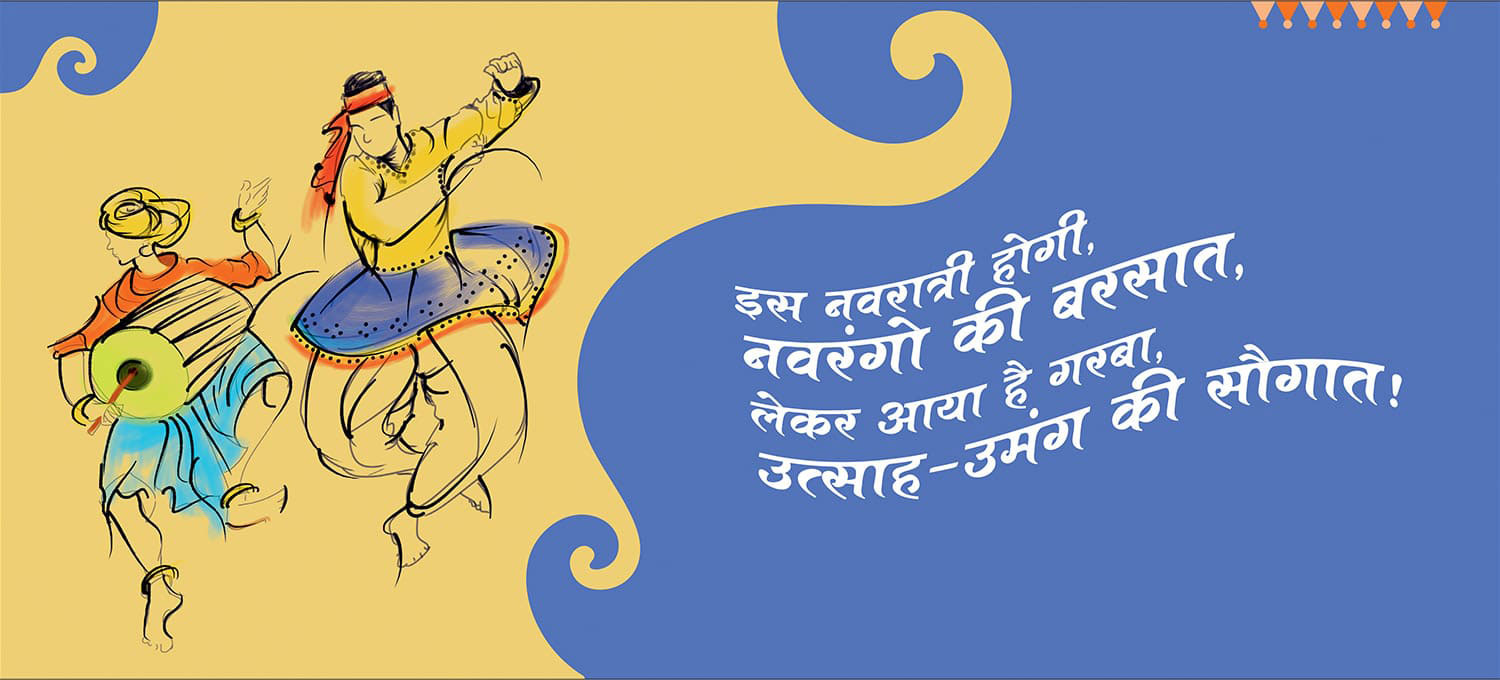 इस नवरात्री होगी,
नवरंगो की बरसात,
लेकर आया है गरबा,
उत्साह-उमंग की सौगात!